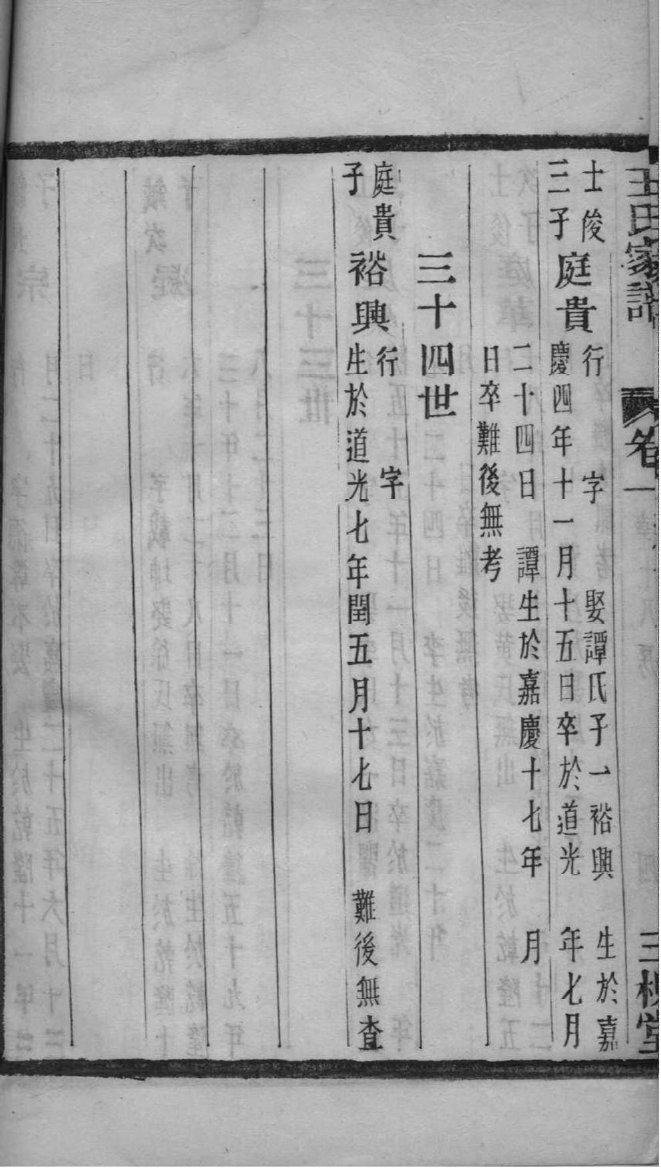 王氏家譜 卷一 三槐堂
士俊
三子
庭貴
行 字 娶譚氏子一裕興 生於嘉
慶四年十一月十五日卒於道光 年七月
二十四日 譚生於嘉慶十七年 月
日卒難後無考
三十四世
庭貴
子
裕興
行 字
生於道光七年閏五月十七日 難後無查